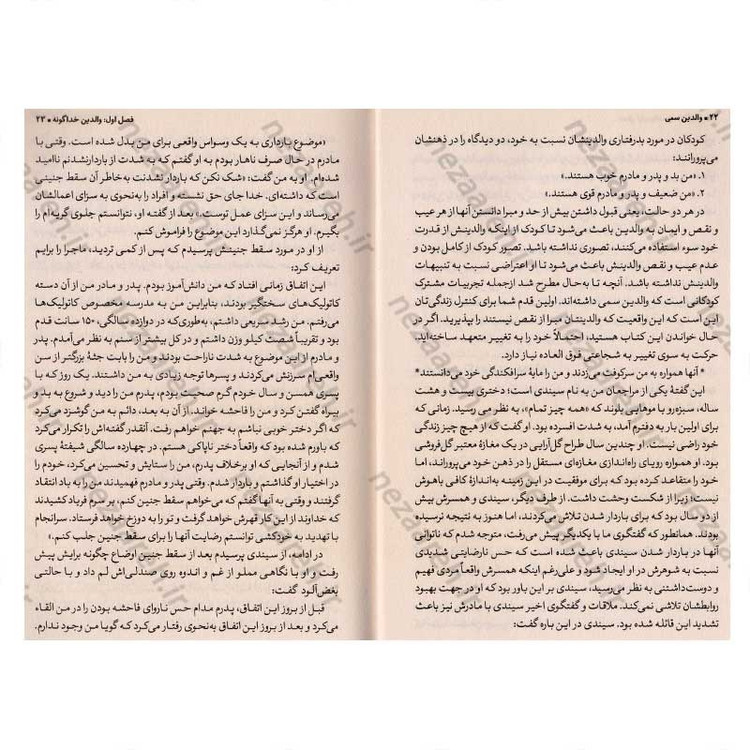 ۲۲ • والدین سمی
کودکان در مورد بدرفتاری والدینشان نسبت به خود، دو دیدگاه را در ذهنشان
می‌پرورانند:
۱. «من بد و پدر و مادرم خوب هستند.»
۲. «من ضعیف و پدر و مادرم قوی هستند.»
در هر دو حالت، یعنی قبول داشتن بیش از حد و مبرا دانستن آنها از هر عیب
و نقص و ایمان به والدین باعث می‌شود تا کودک از اینکه والدینش از قدرت
خود سوء استفاده می‌کنند، تصوری نداشته باشد. تصور کودک از کامل بودن و
عدم عیب و نقص والدینش باعث می‌شود تا او اعتراضی نسبت به تنبیهات
والدینش نداشته باشد. آنچه تا به‌حال مطرح شد ازجمله تجربیات مشترک
کودکانی است که والدین سمی داشته‌اند. اولین قدم شما برای کنترل زندگی‌تان
این است که این واقعیت که والدینتان مبرا از نقص نیستند را بپذیرید. اگر در
حال خواندن این کتاب هستید، احتمالاً خود را به تغییر متعهد ساخته‌اید.
حرکت به سوی تغییر به شجاعتی فوق العاده نیاز دارد.
* آنها همواره به من سرکوفت می‌زدند و من را مایهٔ سرافکندگی خود می‌دانستند*
این گفتهٔ یکی از مراجعان من به نام سیندی است؛ دختری بیست و هشت
ساله، سبزه‌رو با موهایی بلوند که «همه چیز تمام»، به نظر می رسید. زمانی که
برای اولین بار به دفترم آمد، به شدت افسرده بود. او گفت که از هیچ چیز زندگی
خود راضی نیست. او چندین سال طراح گل‌آرایی در یک مغازهٔ معتبر گل‌فروشی
بود. او همواره رویای راه‌اندازی مغازه‌ای مستقل را در ذهن خود می‌پروراند، اما
خود را متقاعد کرده بود که برای موفقیت در این زمینه به‌اندازهٔ کافی باهوش
نیست؛ زیرا از شکست وحشت داشت. از طرف دیگر، سیندی و همسرش بیش
از دو سال بود که برای باردار شدن تلاش می‌کردند، اما هنوز به نتیجه نرسیده
بودند. همانطور که گفتگوی ما با یکدیگر پیش می‌رفت، متوجه شدم که ناتوانی
آنها در باردار شدن سیندی باعث شده است که حس نارضایتی شدیدی
نسبت به شوهرش در او ایجاد شود و علی‌رغم اینکه همسرش واقعاً مردی فهیم
و دوست‌داشتنی به نظر می‌رسید، سیندی بر این باور بود که او در جهت بهبود
روابطشان تلاشی نمی‌کند. ملاقات و گفتگوی اخیر سیندی با مادرش نیز باعث
تشدید این قائله شده بود. سیندی در این باره گفت:
فصل اول: والدین خداگونه • ۲۳
«موضوع بارداری به یک وسواس واقعی برای من بدل شده است. وقتی با
مادرم در حال صرف ناهار بودم به او گفتم که به شدت از باردارنشدنم ناامید
شده‌ام. او به من گفت: «شک نکن که باردار نشدنت به‌خاطر آن سقط جنینی
است که داشته‌ای. خدا جای حق نشسته و افراد را به‌نحوی به سزای اعمالشان
می‌رساند و این سزای عمل توست.» بعد از گفته او، نتوانستم جلوی گریه ام را
بگیرم. او هرگز نمی‌گذارد این موضوع را فراموش کنم.
از او در مورد سقط جنینش پرسیدم که پس از کمی تردید، ماجرا را برایم
تعریف کرد:
این اتفاق زمانی افتاد که من دانش‌آموز بودم. پدر و مادر من از آن دسته
کاتولیک‌های سختگیر بودند، بنابراین من به مدرسه مخصوص کاتولیک‌ها
می‌رفتم. من رشد سریعی داشتم، به‌طوری‌که در دوازده سالگی، ۱۵۰ سانت قدم
بود و تقریباً شصت کیلو وزن داشتم و در کل بیشتر از سنم به نظر می‌آمدم. پدر
و مادرم از این موضوع به شدت ناراحت بودند و من را بابت جثهٔ بزرگتر از سن
واقعی‌ام سرزنش می‌کردند و پسرها توجه زیادی به من داشتند. یک روز که با
پسری همسن و سال خودم گرم صحبت بودم، پدرم من را دید و شروع به بد و
بیراه گفتن کرد و من را فاحشه خواند. از آن به بعد، دائم به من گوشزد می‌کرد
که اگر دختر خوبی نباشم به جهنم خواهم رفت. آنقدر گفته‌اش را تکرار می‌کرد
که باورم شده بود که واقعاً دختر ناپاکی هستم. در چهارده سالگی شیفتهٔ پسری
شدم و از آنجایی که او برخلاف پدرم، من را ستایش و تحسین می‌کرد، خودم را
در اختیار او گذاشتم و باردار شدم. وقتی پدر و مادرم فهمیدند من را به باد انتقاد
گرفتند و وقتی به آنها گفتم که می‌خواهم سقط جنین کنم، بر سرم فریاد کشیدند
که خداوند از این کار قهرش خواهد گرفت و تو را به دوزخ خواهد فرستاد. سرانجام
با تهدید به خودکشی توانستم رضایت آنها را برای سقط جنین جلب کنم.»
در ادامه، از سیندی پرسیدم بعد از سقط جنین اوضاع چگونه برایش پیش
رفت و او با نگاهی مملو از غم و اندوه روی صندلی‌اش لم داد و با حالتی
بغض‌آلود گفت:
قبل از بروز این اتفاق، پدرم مدام حس ناروای فاحشه بودن را در من القاء
می‌کرد و بعد از بروز این اتفاق به‌نحوی رفتار می‌کرد که گویا من وجود ندارم.
nezaaheh.ir